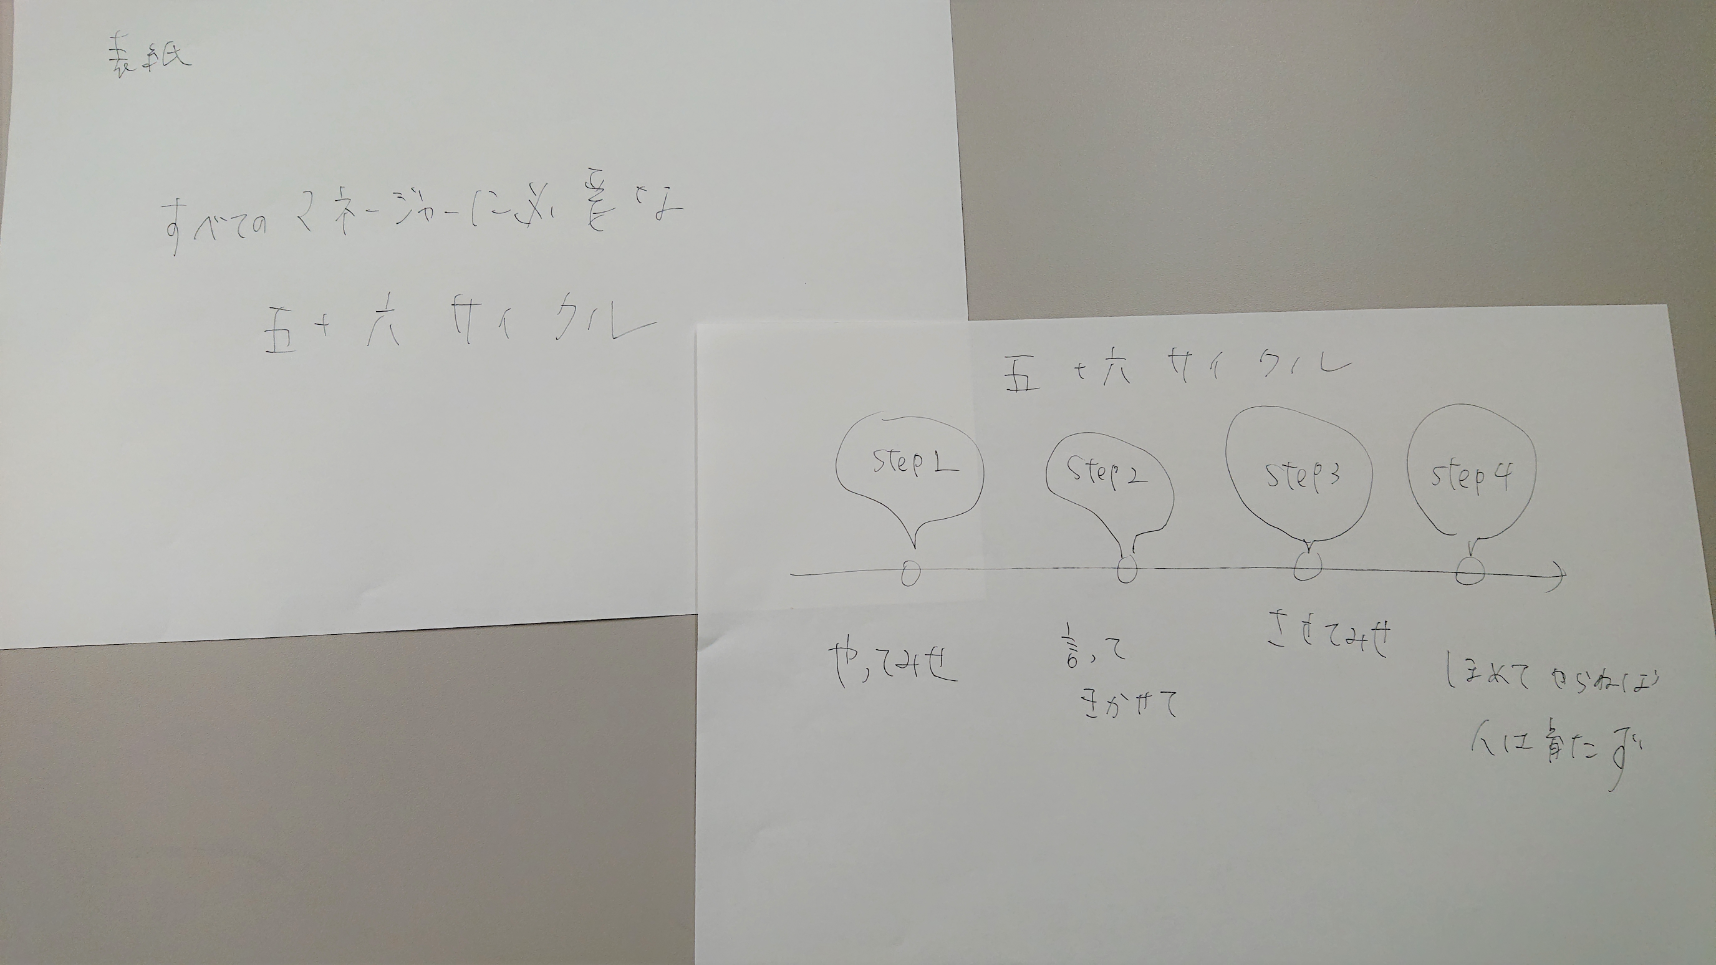 表紙
すべてのマネージャーに必要な
五十六サイクル
五十六サイクル
step1
step2
step3
step4
やってみせ
言って
きかせて
させてみせ
ほめてやらねば
人は育たず